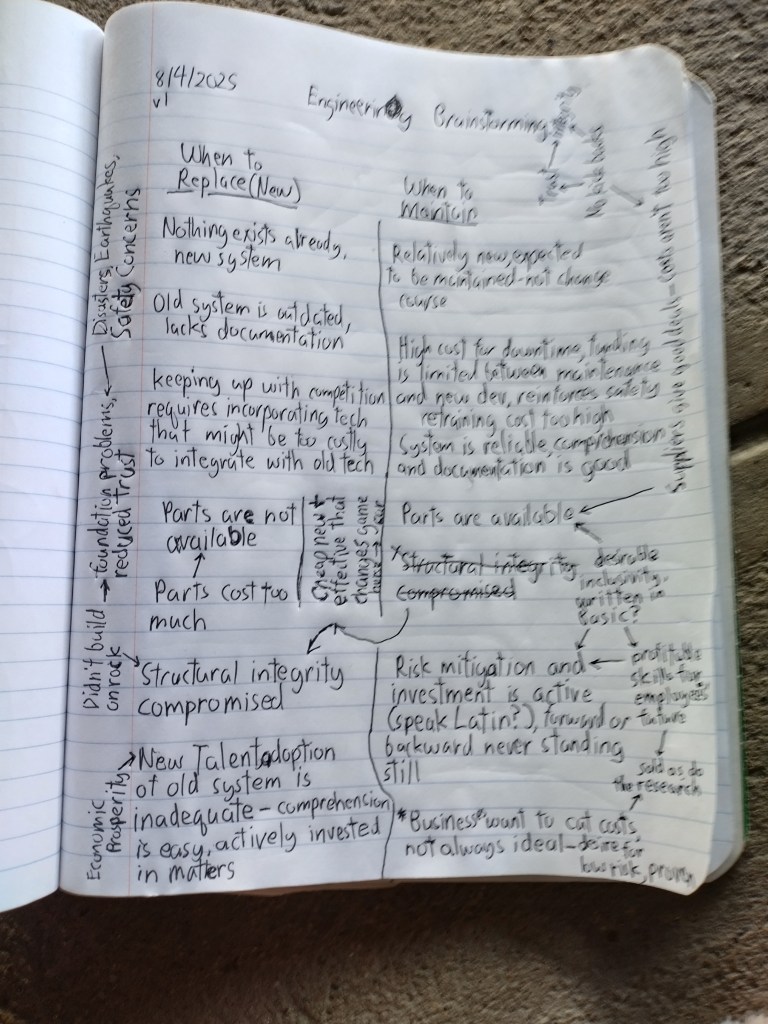 8/4/2025
v1
Engineering Brainstorming
When to
Replace(New)
Nothing exists already,
new system
Old system is outdated,
lacks documentation
keeping up with competition
requires incorporating tech
that might be too costly
to integrate with old tech
Parts are not
available
Parts cost too
much
Structural integrity
compromised
New Talent adoption
of old system is
inadequate - comprehension
is easy, actively invested
in matters
Disasters, Earthquakes,
Safety Concerns
foundation problems,
reduced trust
Didn't build
on rock
Economic
Prosperity
Cheap new +
effective that
changes game
When to
Maintain
Relatively new, expected
to be maintained - not change
course
High cost for downtime, funding
is limited between maintenance
and new dev, reinforces safety
retraining cost too high
System is reliable, comprehension
and documentation is good
Parts are available
*Structural integrity
compromised
desirable
inclusivity,
written in
Basic?
Risk mitigation and
investment is active
(speak Latin?), forward or future
backward never standing
still
profitable
skills for
employees
sold as do
the research
*"Business" want to cut costs
not always ideal - desire for
low risk, proven
Trust
integrity
No kick backs
Suppliers give good deals = costs aren't too high